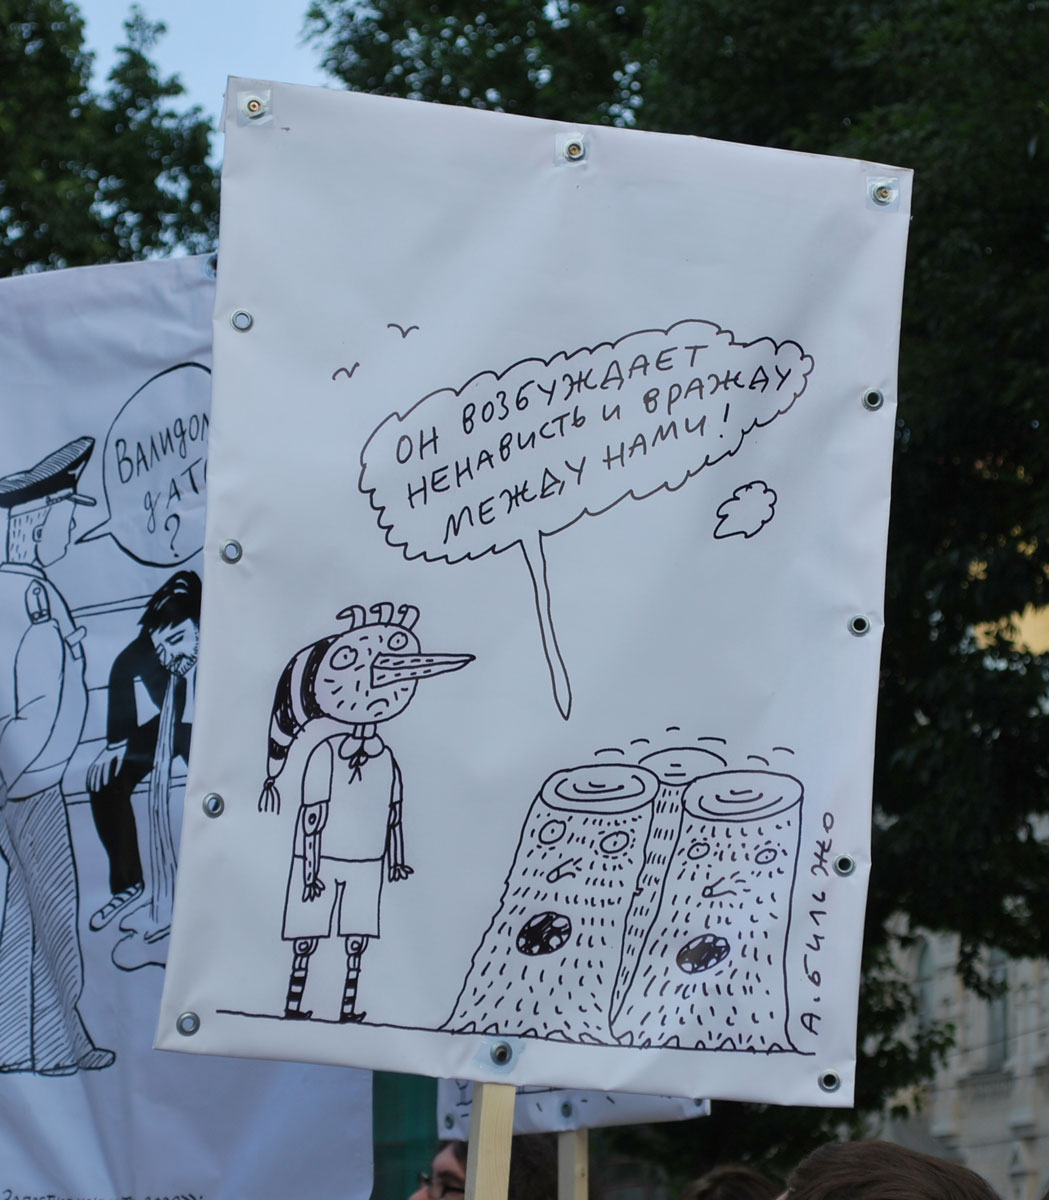 ОН ВОЗБУЖДАЕТ
НЕНАВИСТЬ И ВРАЖДУ
МЕЖДУ НАМИ!
А. БИЛЬЖО
?